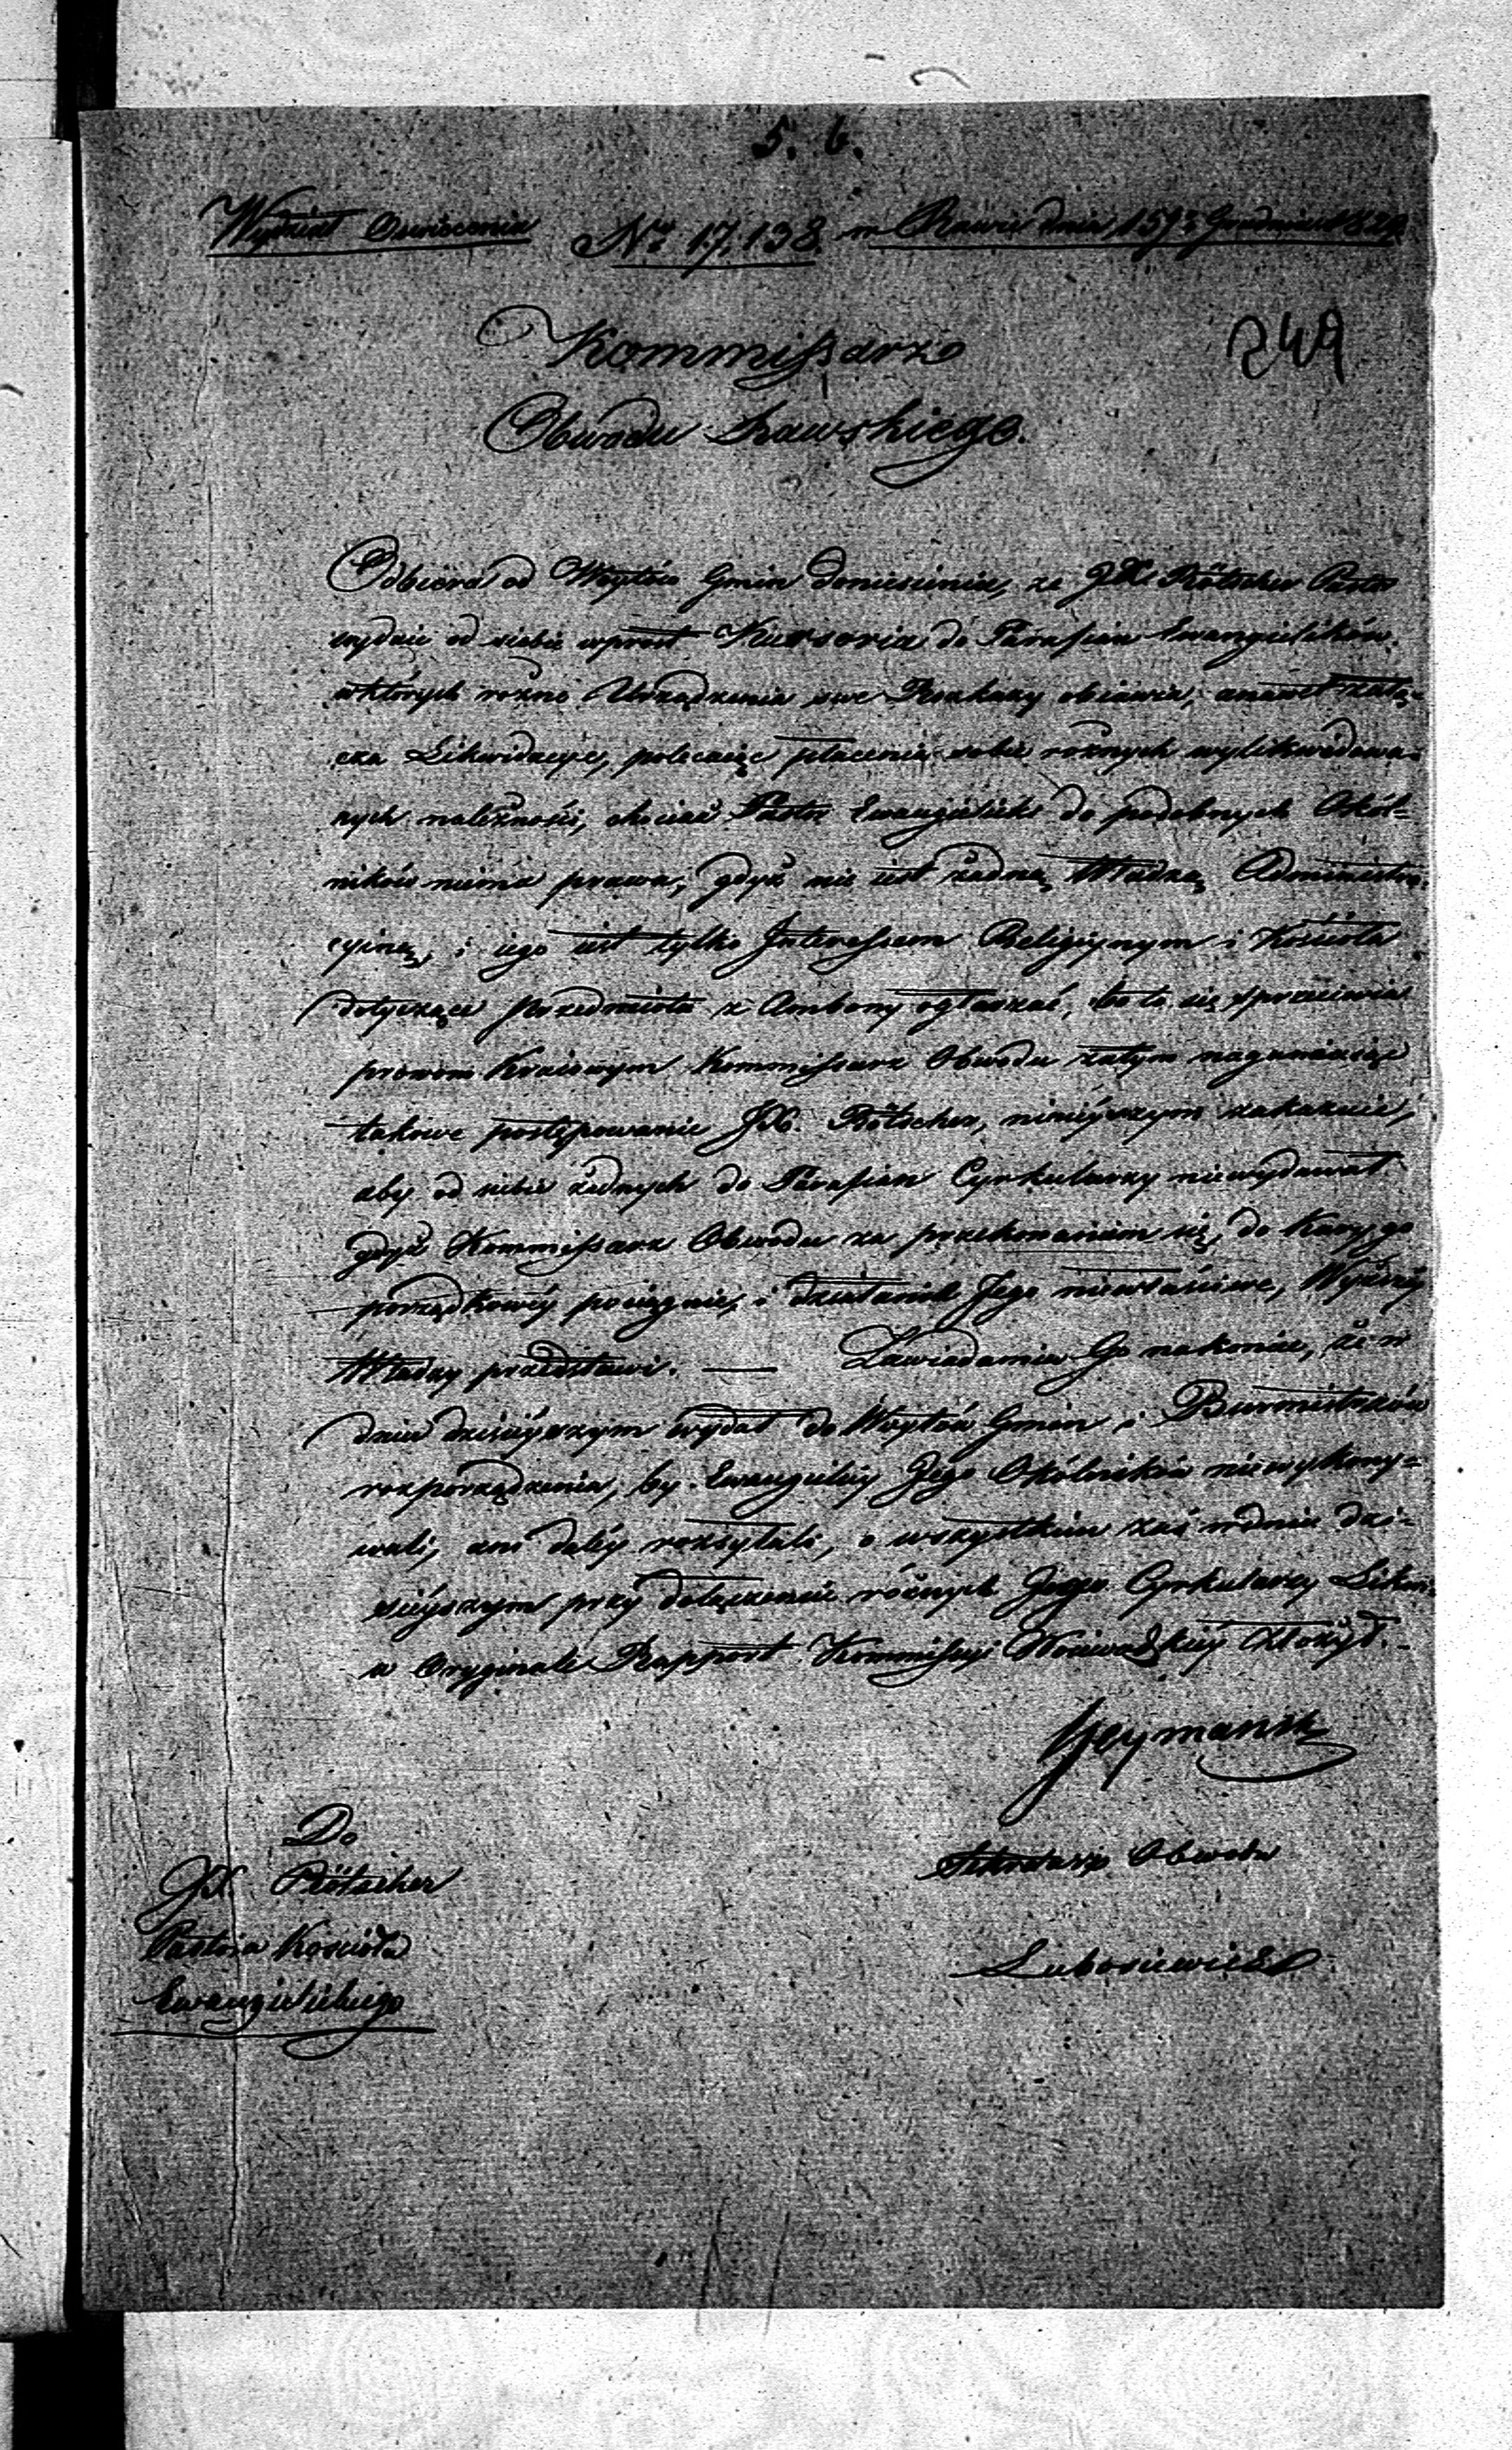 5. 6.
Wydział Oświecenia No 17,138 w Rawie dnia 15 Grudnia 1829
249
Kommissarz
Obwodu Rawskiego.
Odbiera od Woytów Gmin doniesienia, że JX Rötscher Pastor
wydaie od siebie wprost Kursoria do Parafian Ewangielików
w których rożne Urządzenia swe Rozkazy obiawia, a nawet załą-
cza Likwidacye, polecaiąc płacenia sobie rożnych wylikwidowa-
nych należności, chociaż Pastor Ewangielicki do podobnych Okól-
ników niema prawa, gdyż nie iest żadną Władzą Administra-
cyiną, i iego iest tylko Interessem Religiynym i Kościoła
dotyczące przedmiota z Ambony ogłaszać, bo to się sprzeciwia
prawom Kraiowym Kommissarz Obwodu zatym naganiaiąc
takowe postępowanie JX. Rötscher, ninieyszym zakazuie,
aby od siebie żadnych do Parafian Cyrkularzy niewydawał
gdyż Kommissarz Obwodu za przekonaniem się, do Kary go
porządkowéy pociągnie, i działanie Jego niewłaściwe, Wyższéy
Władzy przedstawi. — Zawiadamia Go nakoniec, że w
dniu dzisiéyszym wydał do Woytów Gmin i Burmistrzów
rozporządzenia, by Ewangielicy Jego Okólników niewykony-
wali, ani daléy rozsyłali, o wszystkim zaś w dniu dzi-
sieyszym przy dołączeniu rożnych Jego Cyrkularzy Likwi:
w Oryginale Rapport Kommissyi Woiewodzkiéy złożył. -
Heymann
Do
JX. Rötscher
Pastora Kościoła
Ewangielickiego
Sekretarz Obwodu
Lubosiewicz